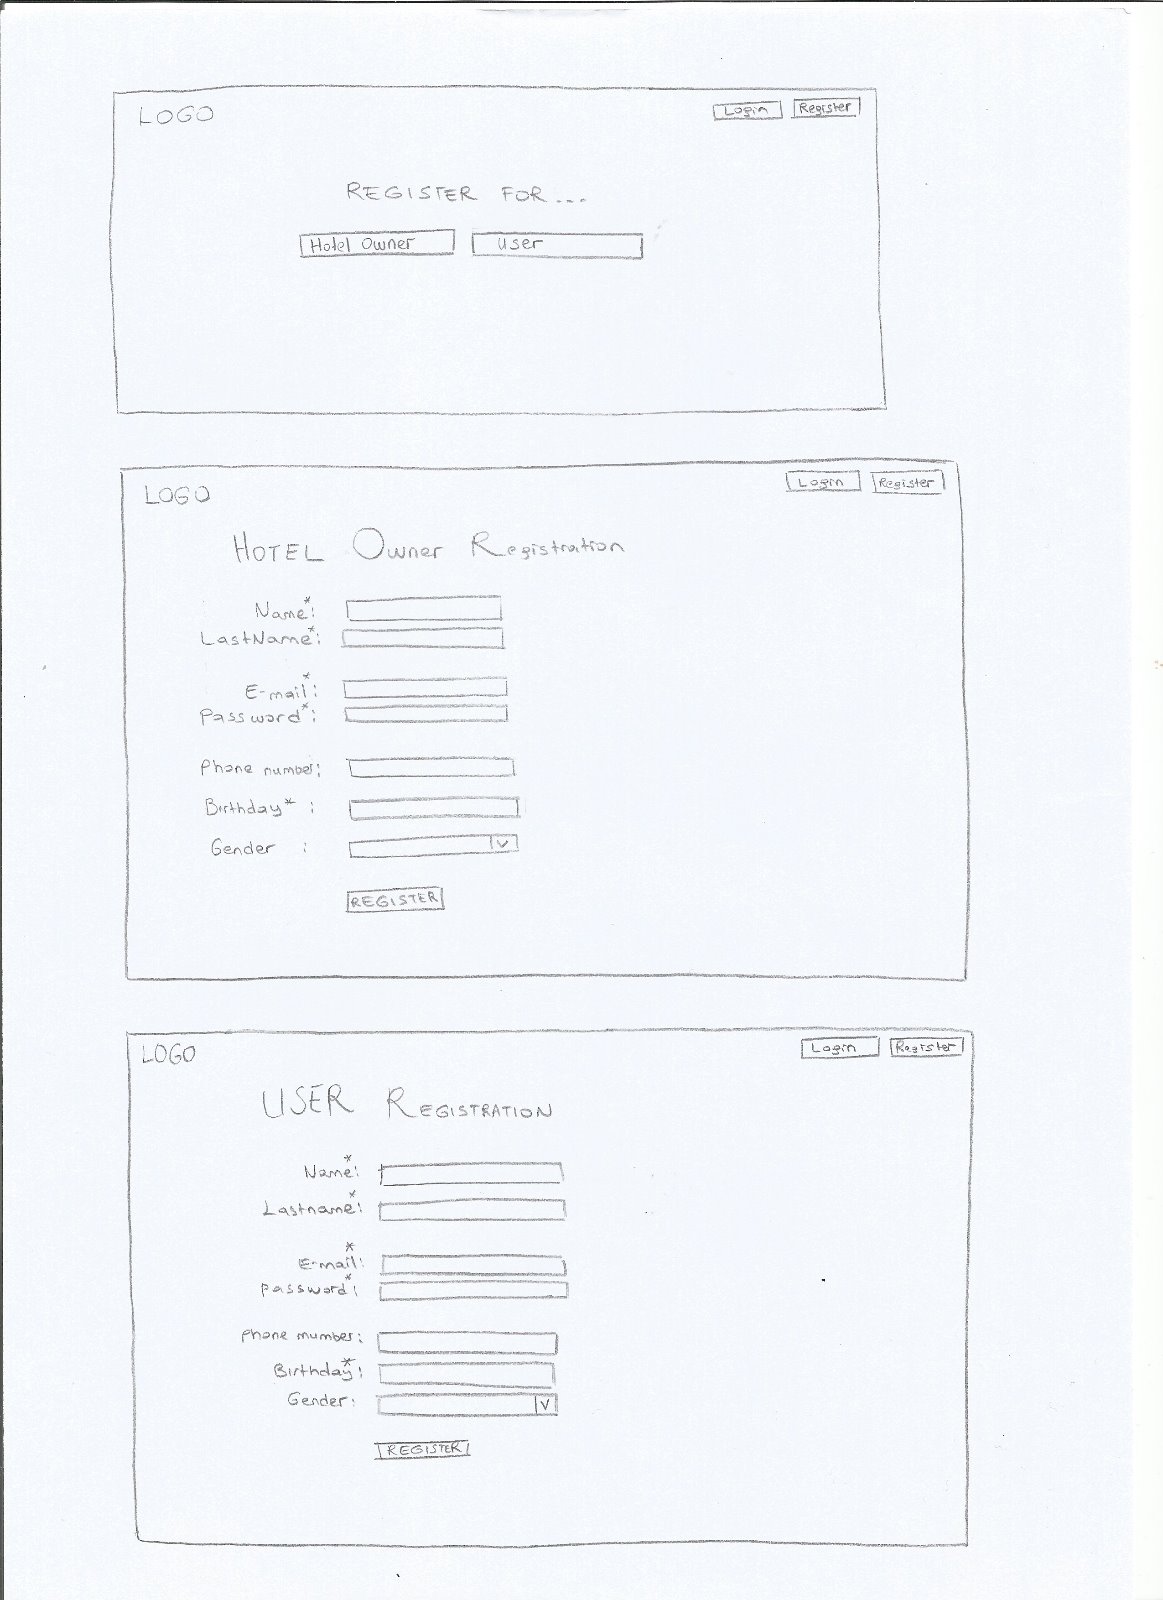 LOGO Login Register
REGISTER FOR...
Hotel Owner User
LOGO Login Register
HOTEL Owner Registration
Name*:
LastName*:
E-mail*:
Password*:
Phone number:
Birthday* :
Gender :
REGISTER
LOGO Login Register
USER REGISTRATION
Name*:
Lastname*:
E-mail*:
Password*:
Phone mumber:
Birthday*:
Gender:
REGISTER